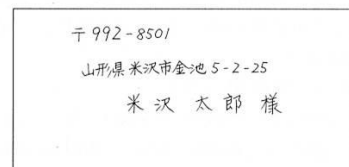 〒992-8501
山形県米沢市金池5-2-25
米沢太郎様